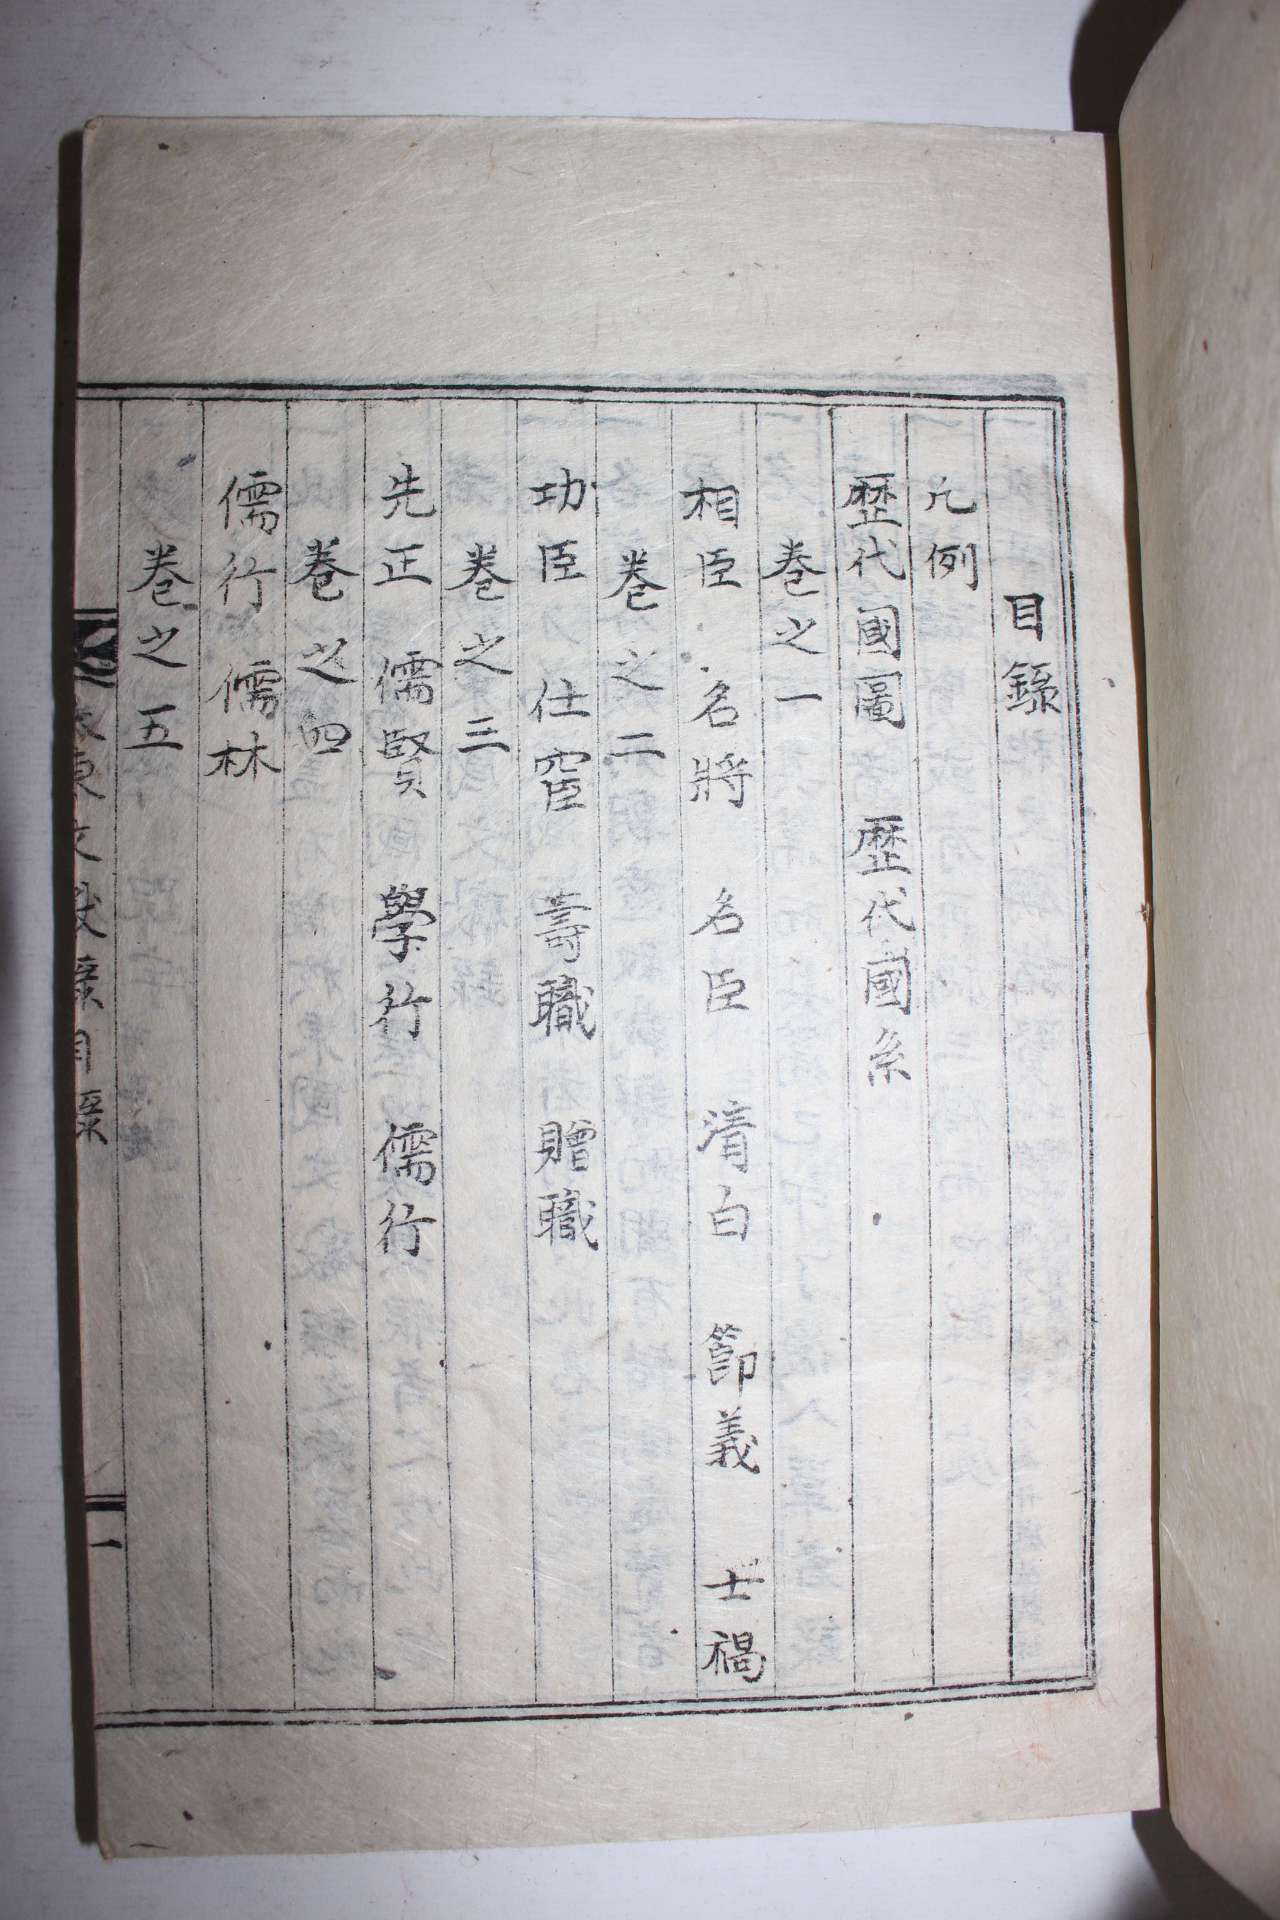 目錄
凡例
歷代國圖 歷代國系
卷之一
相臣 名將 名臣 清白 節義 士禍
卷之二
功臣 仕宦 壽職 贈職
卷之三
先正 儒賢 學行 儒行
卷之四
儒行 儒林
卷之五
東文獻 目錄 一